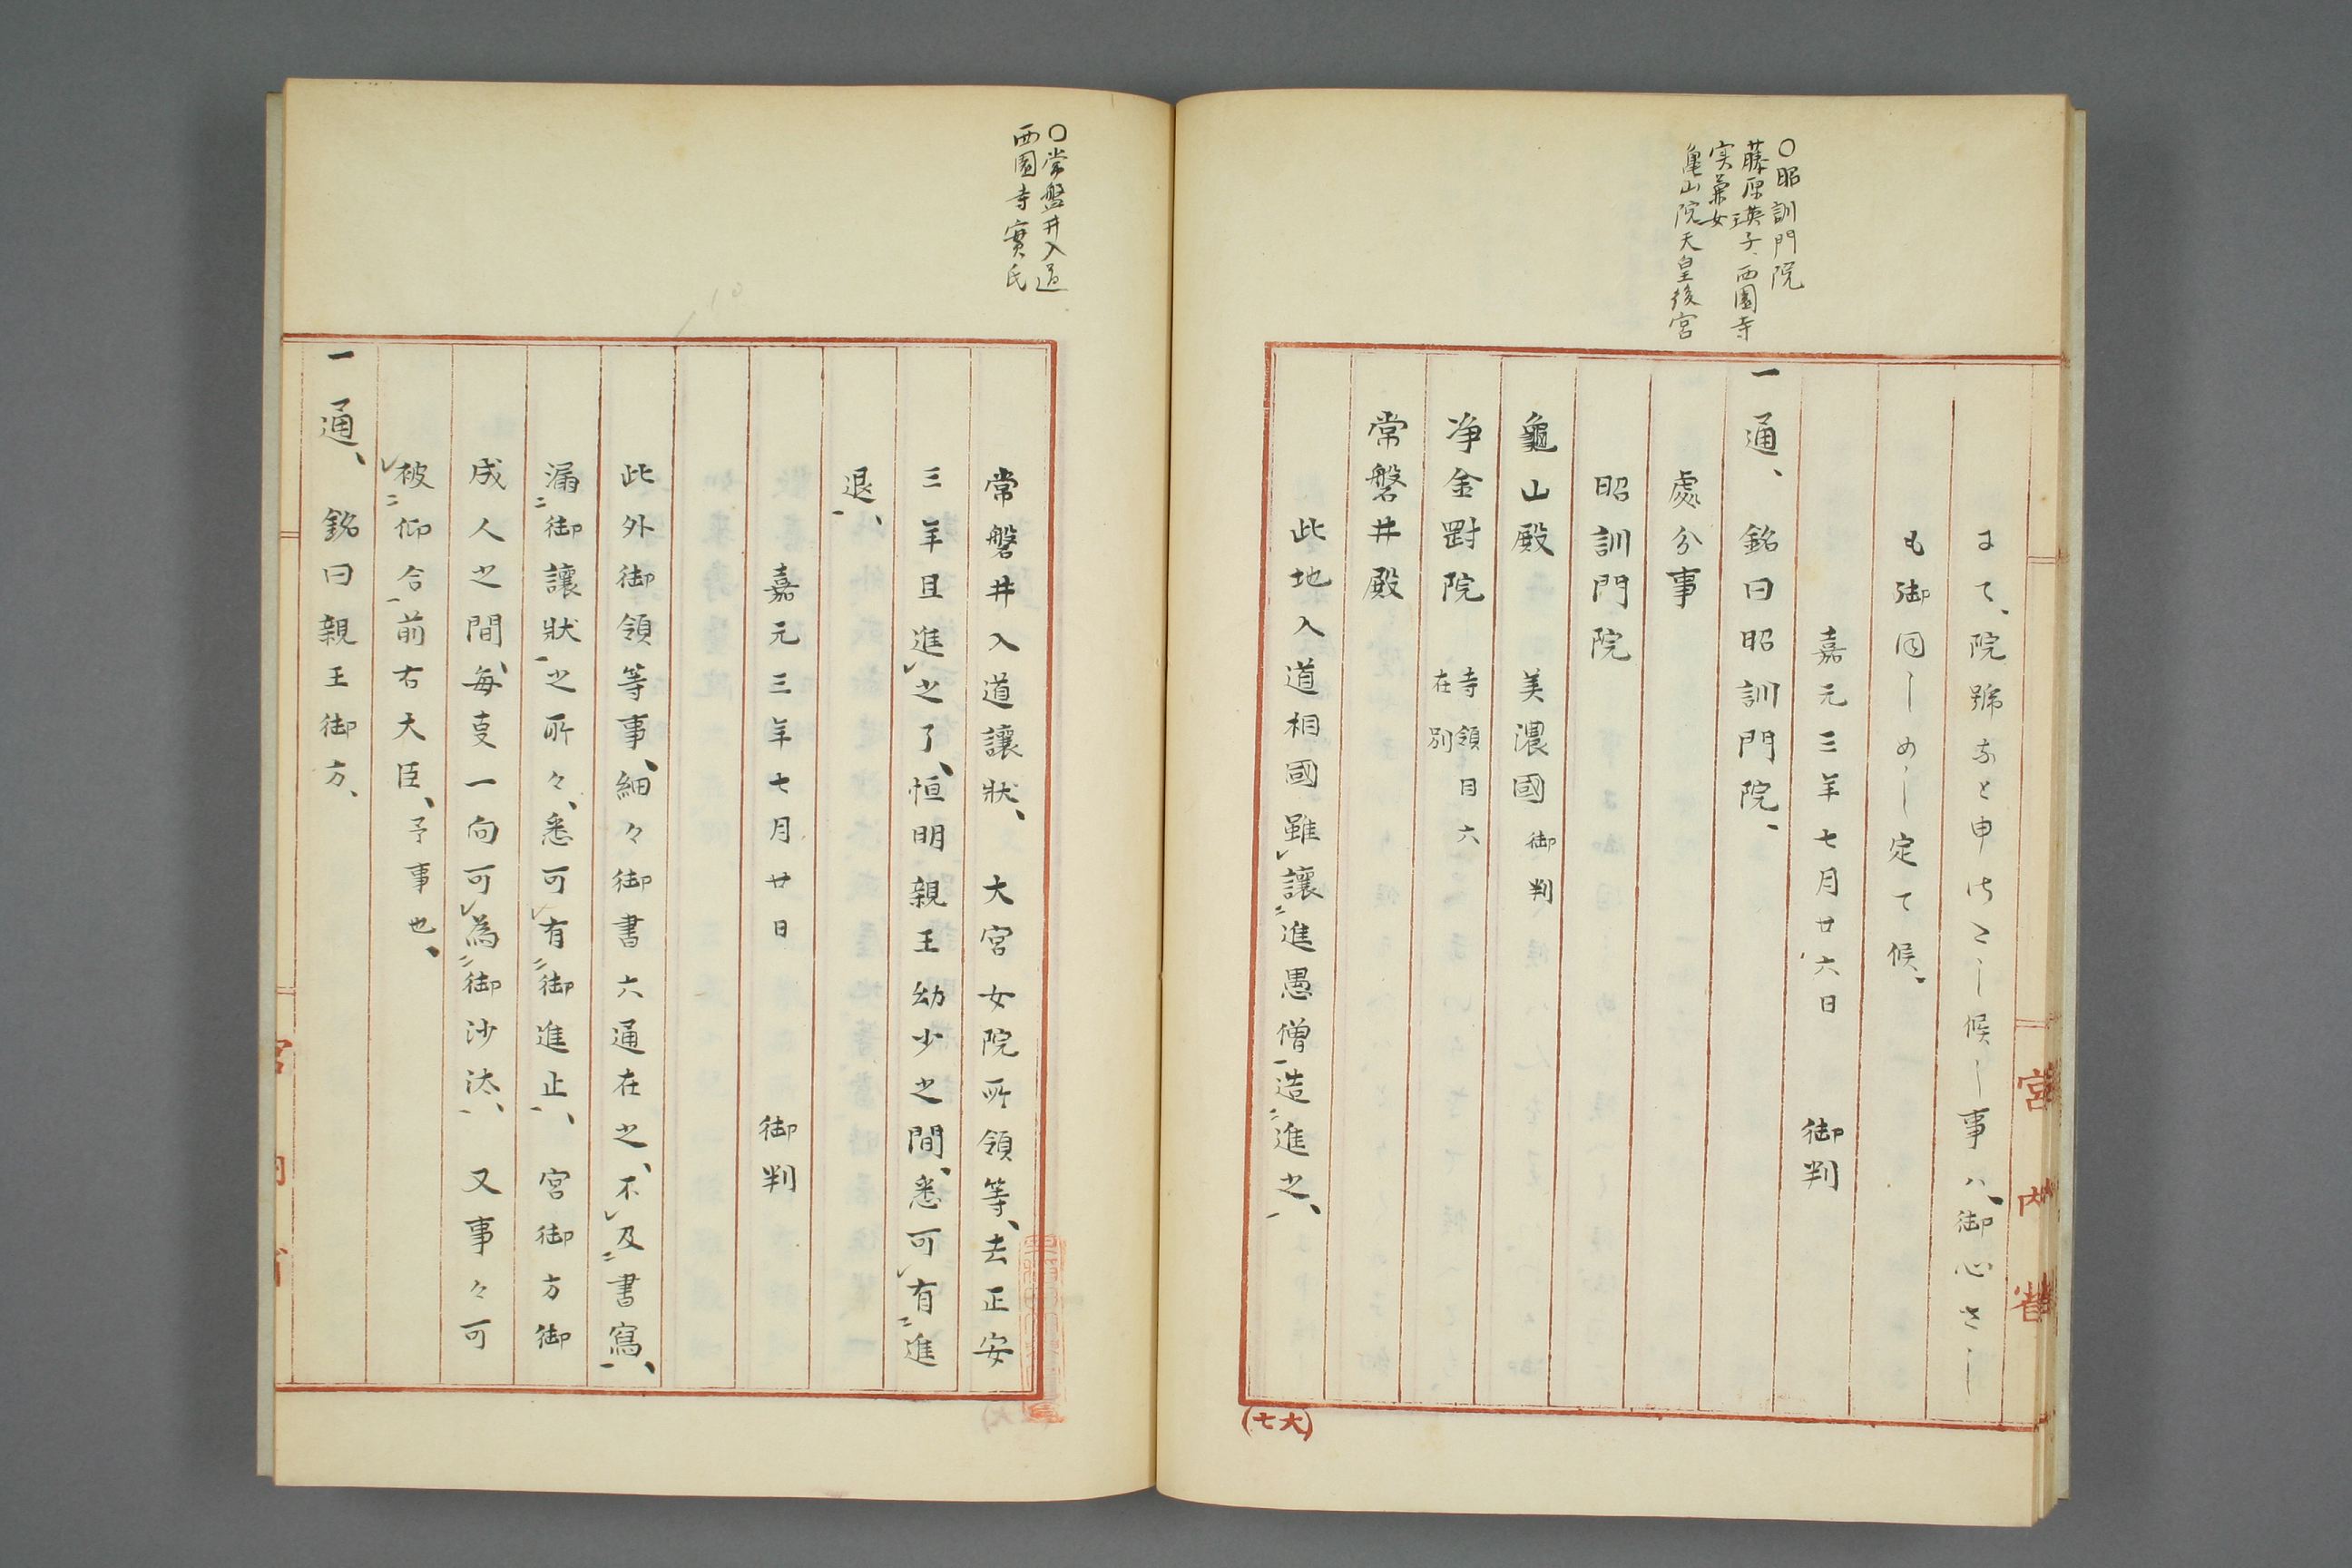 〇昭訓門院
藤原瑛子、西園寺
実兼女
亀山院天皇後宮
まて、院號なと申けこし候し事ハ、御心さし
も御同しめし定て候、
嘉元三年七月廿六日　御判
一通、銘曰昭訓門院、
處分事
昭訓門院
龜山殿　美濃國御判
浄金剛院　寺領目六
在別
常磐井殿
此地入道相國雖讓進愚僧造進之、
宮内省
(七大)
〇常盤井入道
西園寺實氏
常磐井入道讓狀、大宮女院所領等、去正安
三年且進之了、恒明親王幼少之間、悉可有進
退、
嘉元三年七月廿日　御判
此外御領等事、細々御書六通在之、不及書寫、
漏御讓狀之所々、悉可有御進止、宮御方御
成人之間、每事一向可為御沙汰、又事々可
被仰合前右大臣、予事也、
一通、銘曰親王御方、